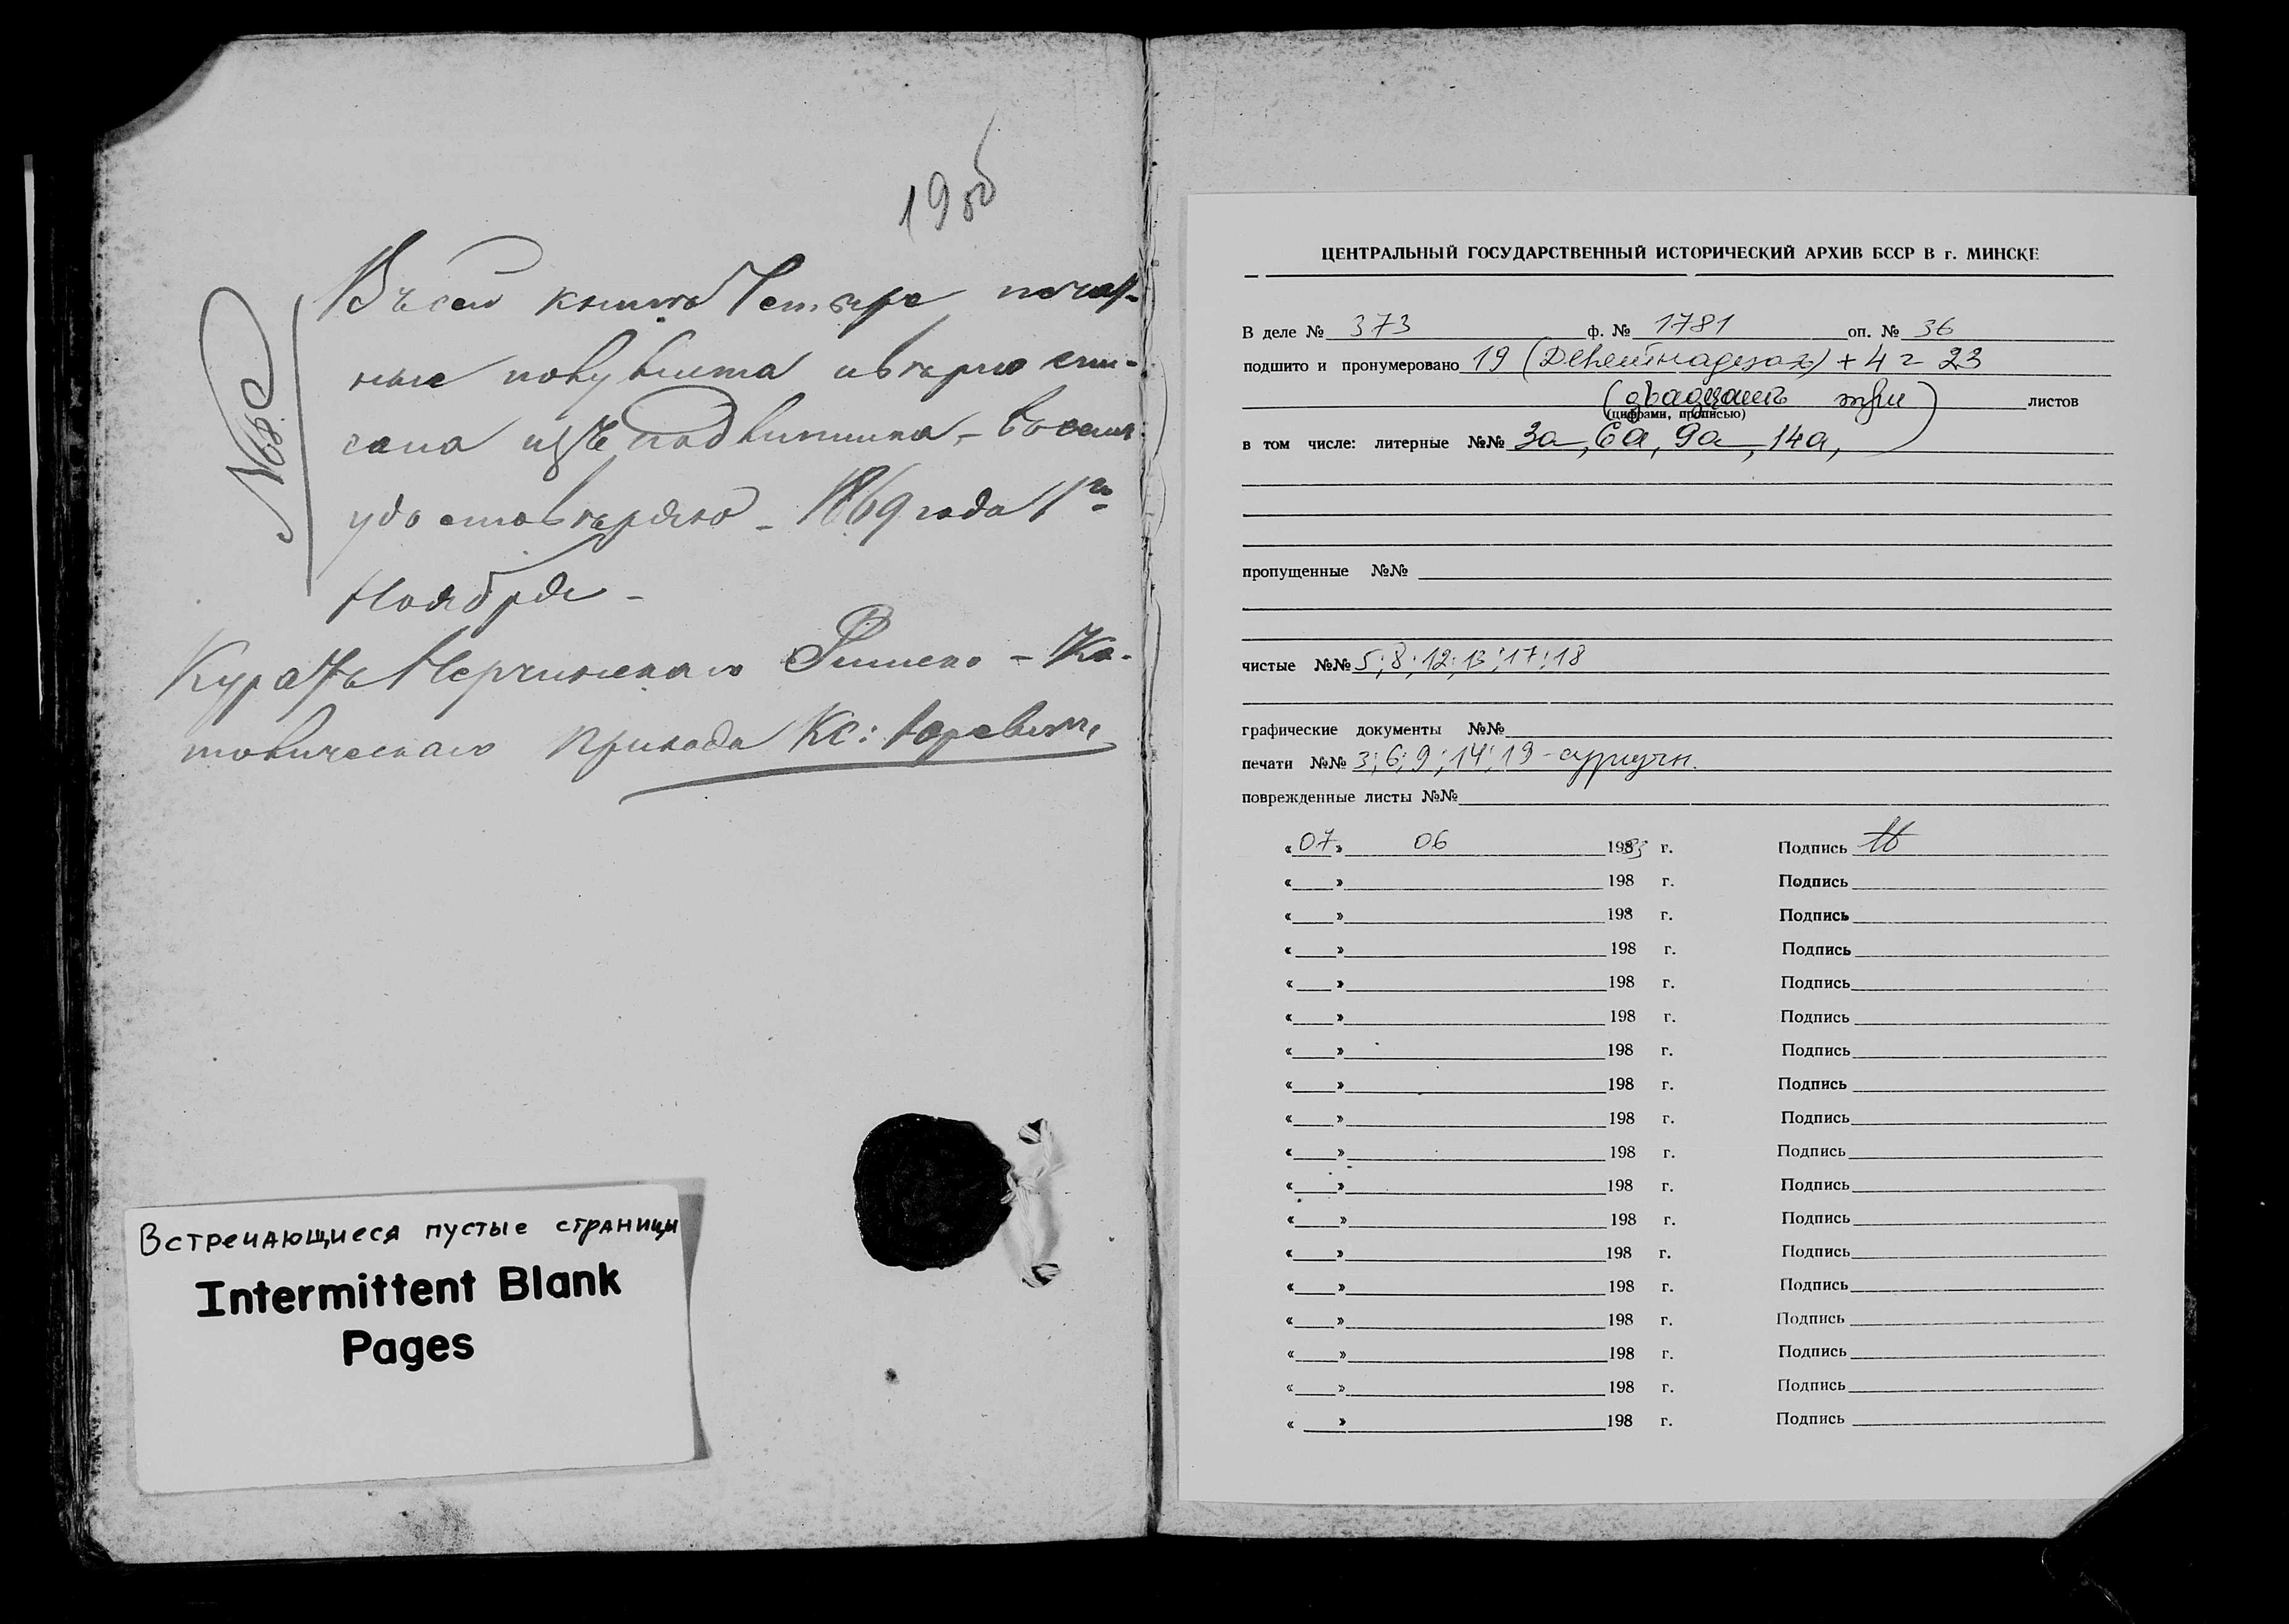 19об
№68.
Въ сей книгѣ Четыре печат-
ные полулиста и вѣрно спи-
сана изъ подлинника, – въ семъ
удостовѣряю – 1869 года 1го
Ноября –
Куратъ Римско – Ка-
толическаго прихода Кс: Юревичъ
Встречающиеся пустые страницы
Intermittent Blank
Pages
ЦЕНТРАЛЬНЫЙ ГОСУДАРСТВЕННЫЙ ИСТОРИЧЕСКИЙ АРХИВ БССР В г. МИНСКЕ
В деле № 373 ф. № 1781 оп. № 36
подшито и пронумеровано 19 (Девятнадцать) + 4 = 23
(двадцать три) листов
(цифрами, прописью)
в том числе: литерные №№ 3а, 6а, 9а, 14а,
пропущенные №№
чистые №№ 5; 8; 12; 13; 17; 18
графические документы №№
печати №№ 3; 6; 9; 14; 19 - сургучн.
поврежденные листы №№
« 07 » 06 198 г. Подпись
« » 198 г. Подпись
« » 198 г. Подпись
« » 198 г. Подпись
« » 198 г. Подпись
« » 198 г. Подпись
« » 198 г. Подпись
« » 198 г. Подпись
« » 198 г. Подпись
« » 198 г. Подпись
« » 198 г. Подпись
« » 198 г. Подпись
« » 198 г. Подпись
« » 198 г. Подпись
« » 198 г. Подпись
« » 198 г. Подпись
« » 198 г. Подпись
« » 198 г. Подпись